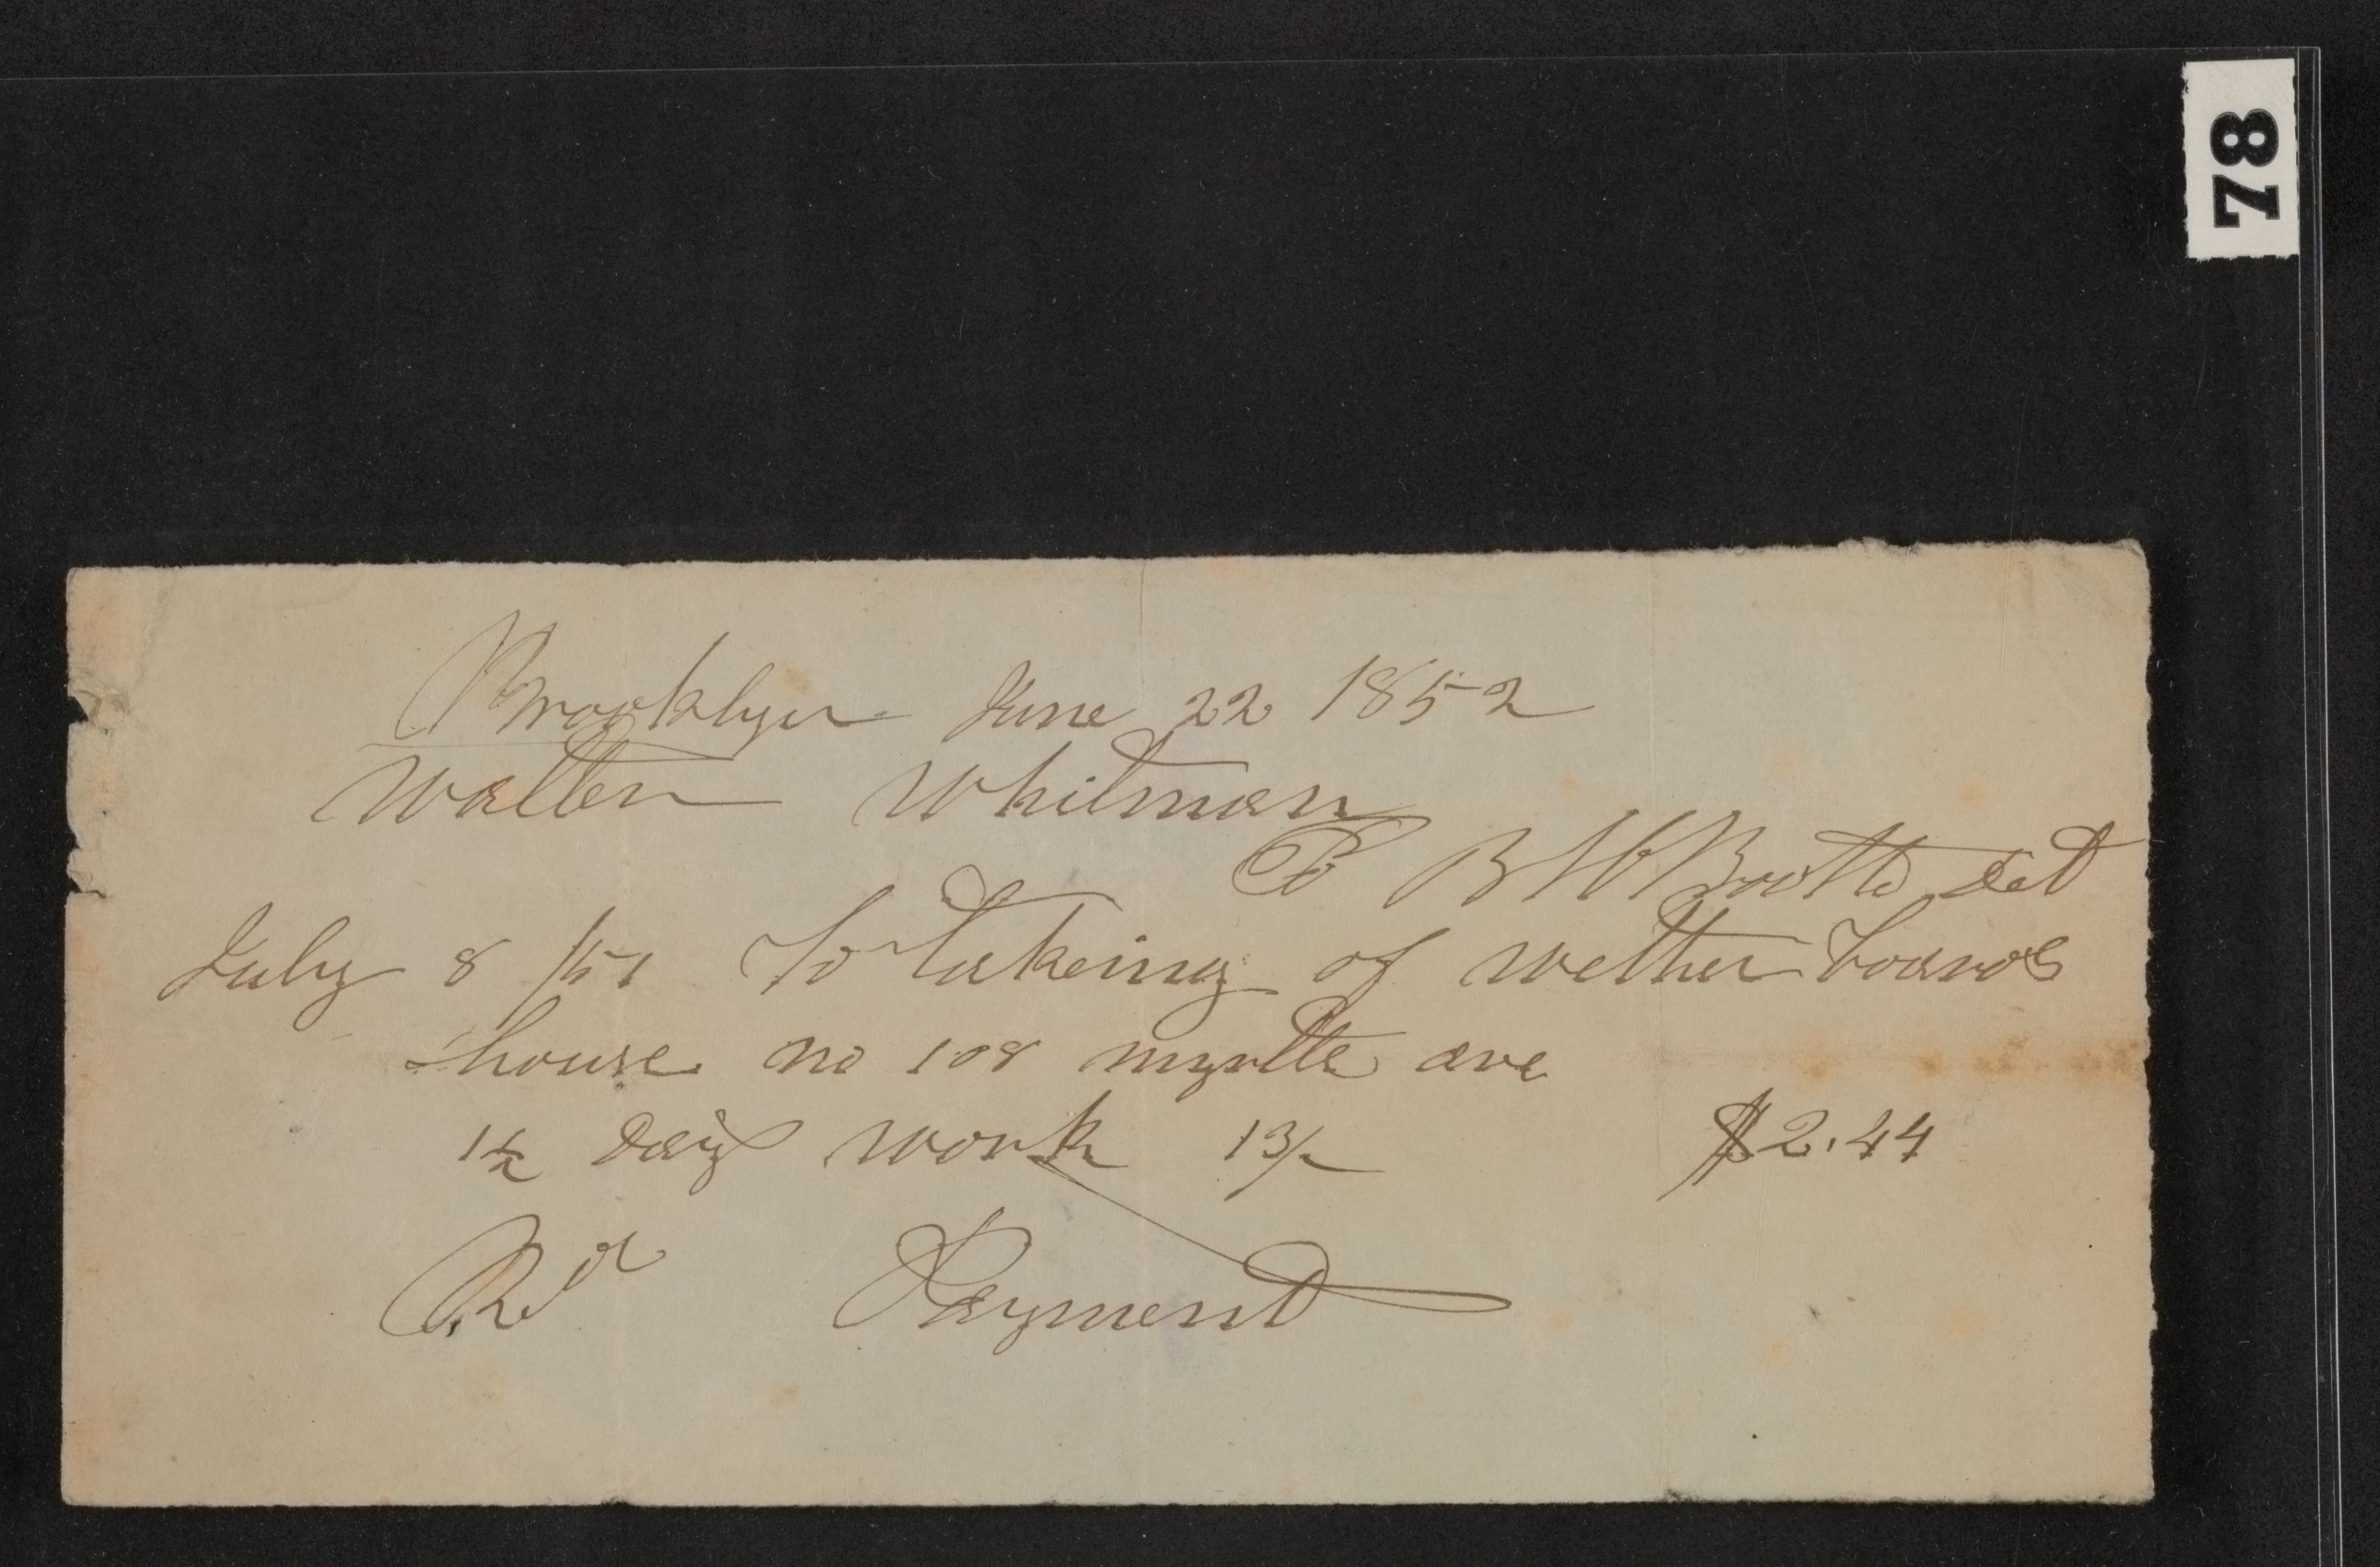 78
Brooklyn June 22 1852
Walter Whitman
To B H Brotts Det
July 8 /51 To takeing of wether boards
house no 108 myrtle ave
1½ Days work 13/ $2.44
Rd Payment